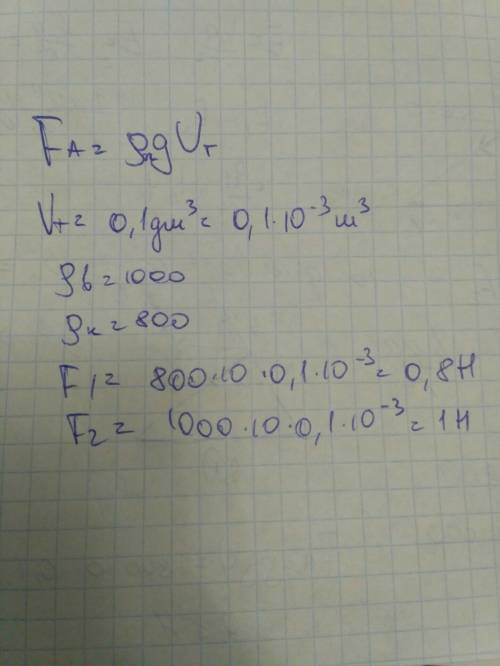 FА = ρж g Vт
Vт = 0,1 дм³ = 0,1·10⁻³ м³
ρв = 1000
ρк = 800
F₁ = 800·10·0,1·10⁻³ = 0,8Н
F₂ = 1000·10·0,1·10⁻³ = 1Н